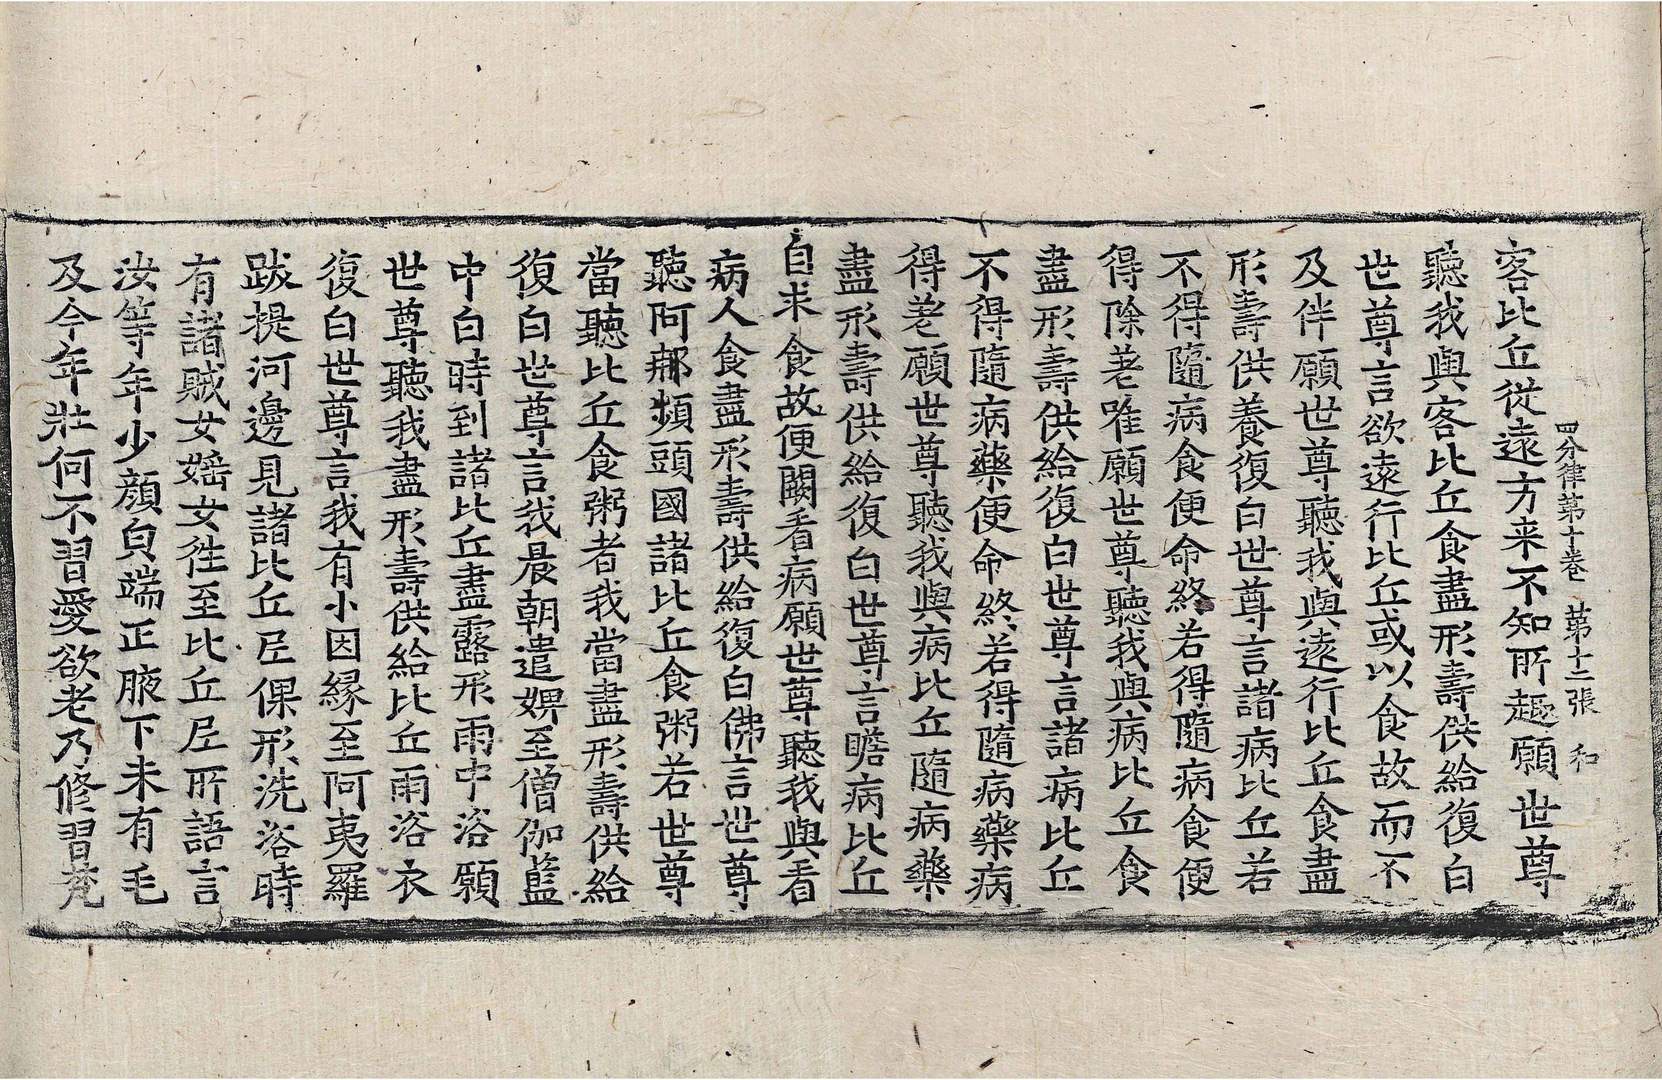 四分律第十卷　第十二張　和
客比丘從遠方来不知所趣願世尊
聽我與客比丘食盡形壽供給復白
世尊言欲遠行比丘或以食故而不
及伴願世尊聽我與遠行比丘食盡
形壽供養復白世尊言諸病比丘若
不得隨病食便命終若得隨病食便
得除差唯願世尊聽我與病比丘食
盡形壽供給復白世尊言諸病比丘
不得隨病藥便命終若得隨病藥病
得差願世尊聽我與病比丘隨病藥
盡形壽供給復白世尊言瞻病比丘
自求食故便闕看病願世尊聽我與看
病人食盡形壽供給復白佛言世尊
聽阿那頻頭國諸比丘食粥若世尊
當聽比丘食粥者我當盡形壽供給
復白世尊言我晨朝遣婢至僧伽藍
中白時到諸比丘盡露形雨中浴願
世尊聽我盡形壽供給比丘雨浴衣
復白世尊言我有小因緣至阿夷羅
跋提河邊見諸比丘尼倮形洗浴時
有諸賊女婬女徃至比丘尼所語言
汝等年少顔皃端正腋下未有毛
及今年壯何不習愛欲老乃修習梵